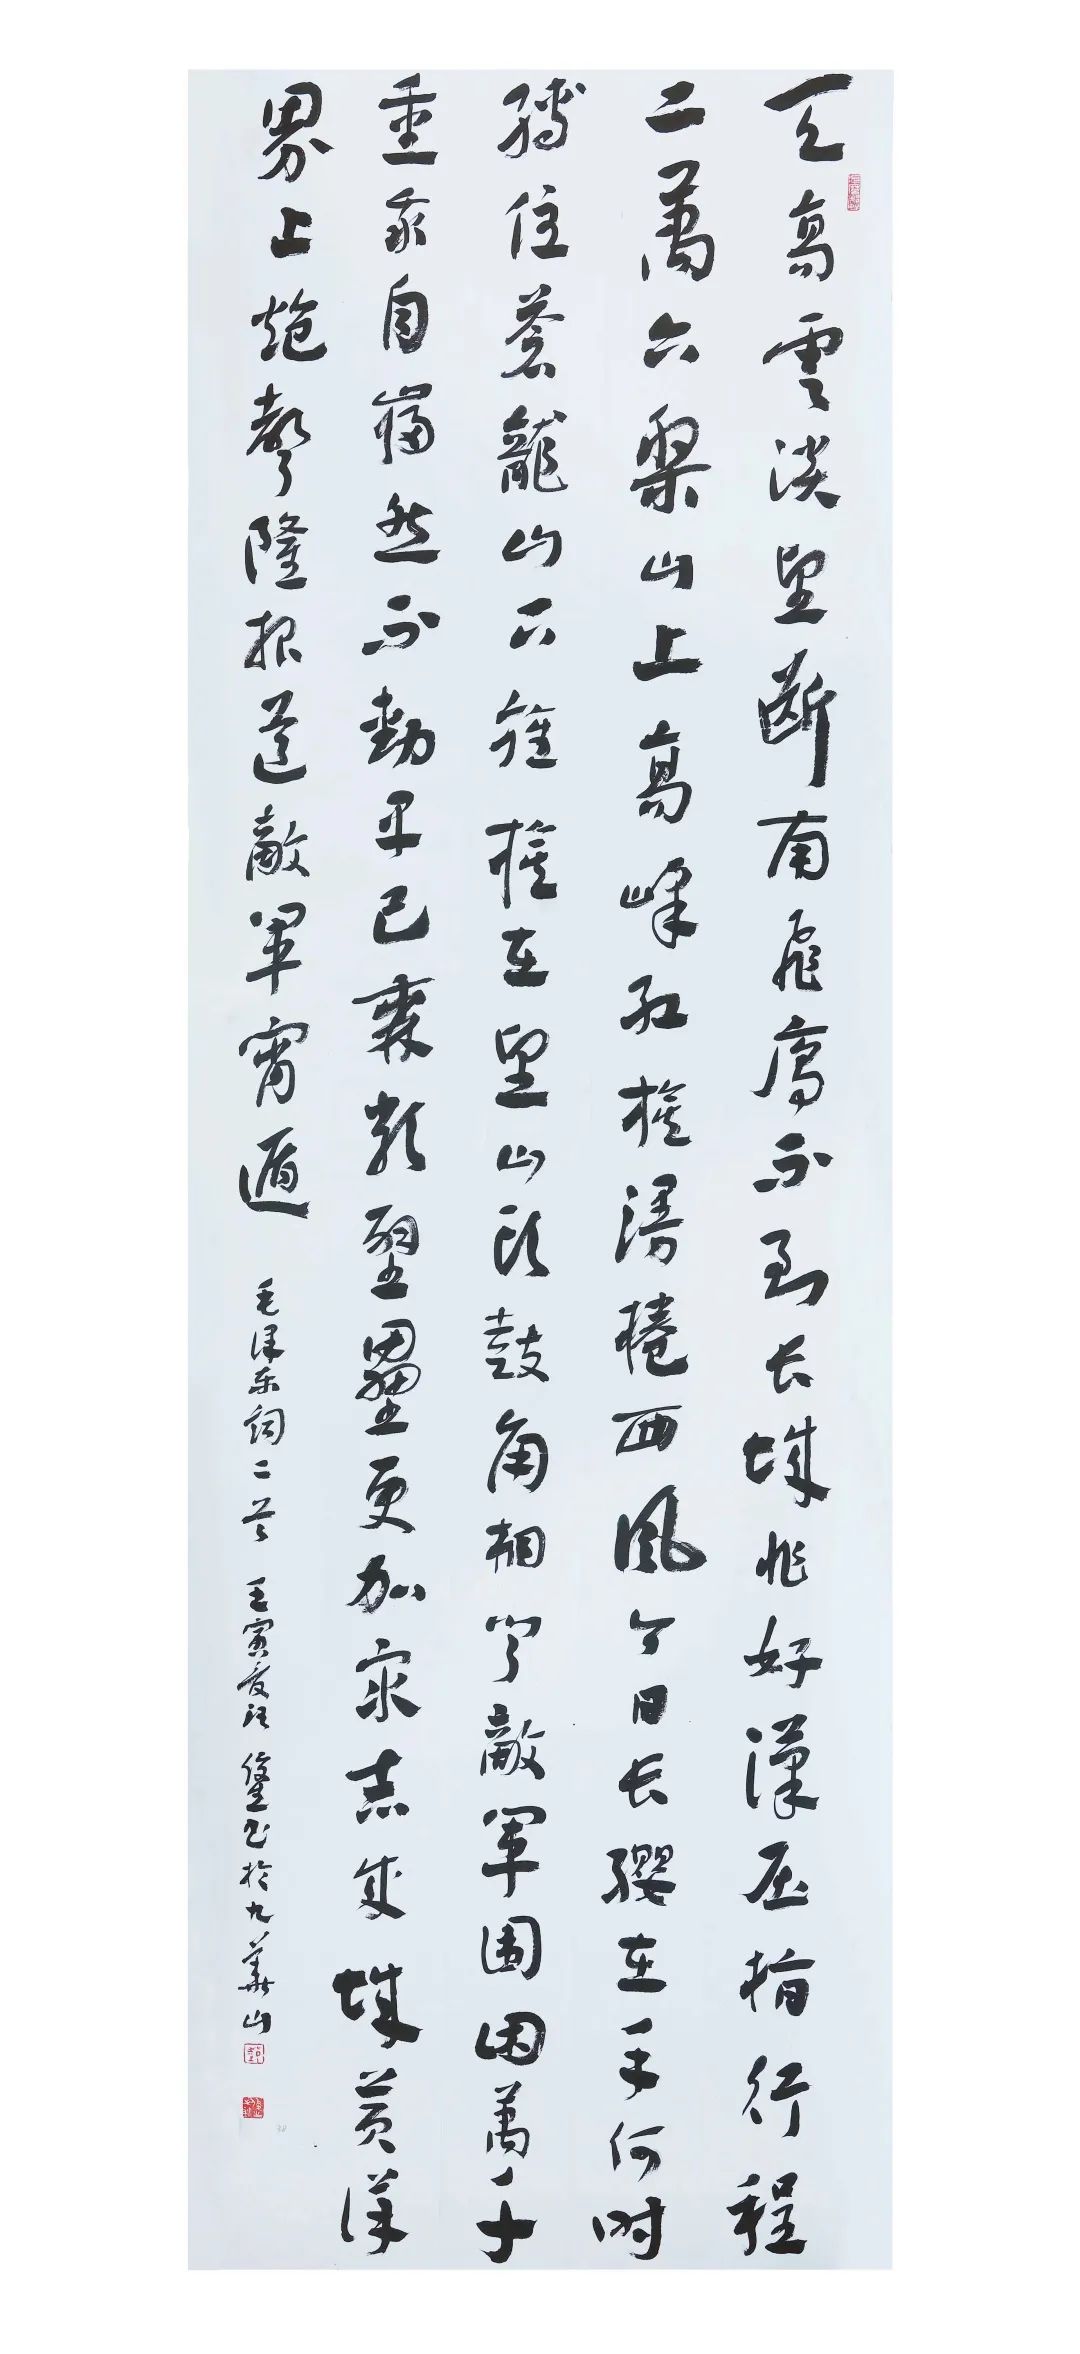 天高雲淡望斷南飛鴈不到长城非好漢屈指行程
二萬六槃山上高峰红旗漫捲西風今日长纓在手何时
縛住蒼龍山下旌旗在望山头鼓角相闻敵軍圍困萬千
重我自巋然不動早已森严壁壘更加眾志成城黄洋
界上炮聲隆报道敵軍宵遁
毛泽东词二首 壬寅夏 书於九華山